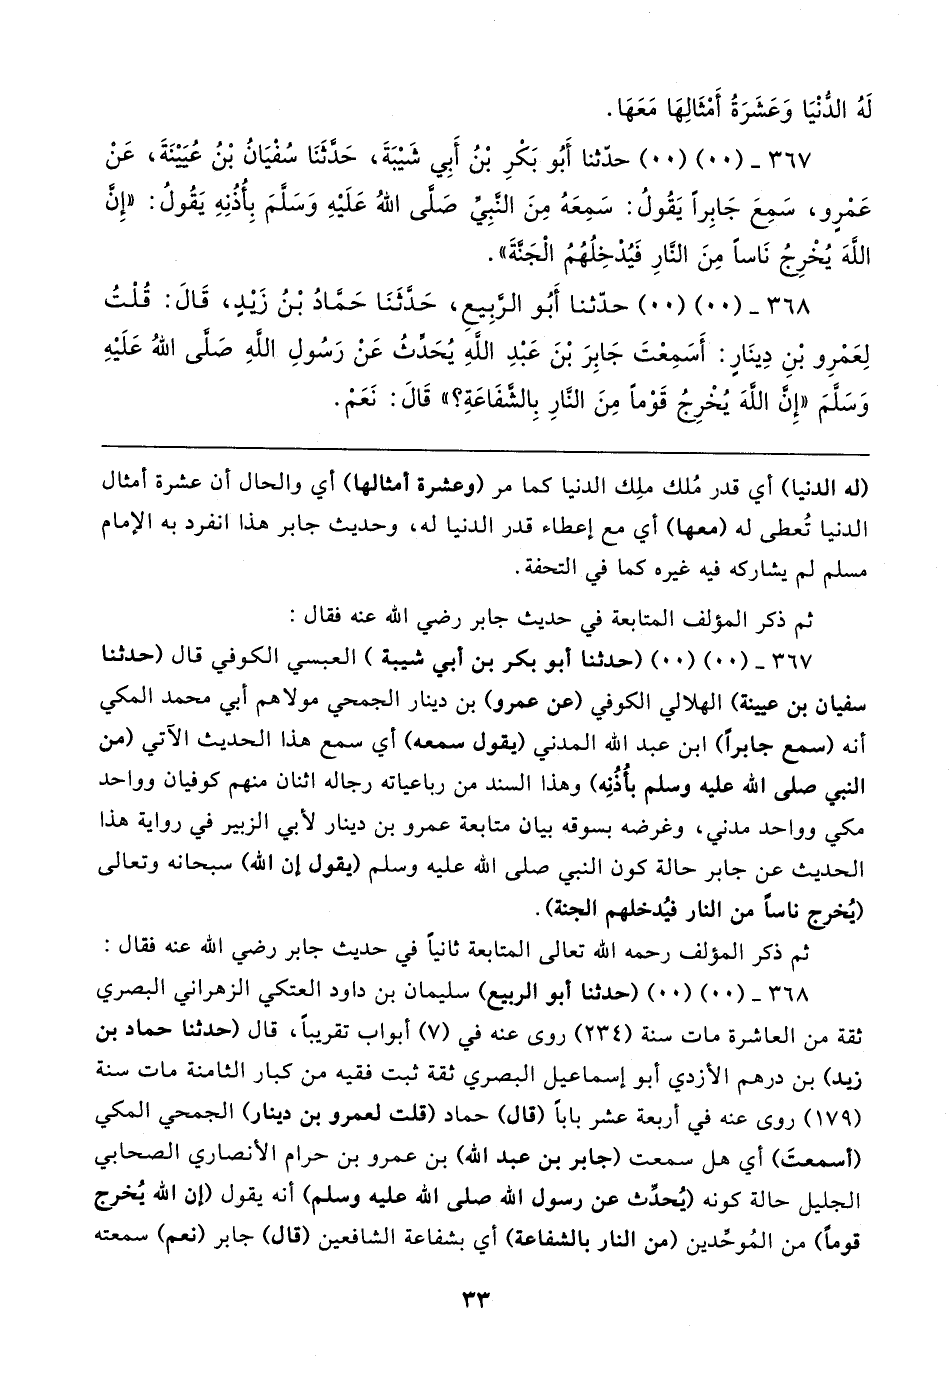 لَهُ الدُّنْيَا وَعَشَرَةُ أَمْثَالِهَا مَعَهَا.
٣٦٧ ـ (٠٠) (٠٠) حدّثنا أَبُو بَكْرِ بْنُ أَبِي شَيْبَةَ، حَدَّثَنَا سُفْيَانُ بْنُ عُيَيْنَةَ، عَنْ
عَمْرٍو، سَمِعَ جَابِراً يَقُولُ: سَمِعَهُ مِنَ النَّبِيِّ صَلَّى اللهُ عَلَيْهِ وَسَلَّمَ بِأُذُنِهِ يَقُولُ: «إِنَّ
اللَّهَ يُخْرِجُ نَاساً مِنَ النَّارِ فَيُدْخِلُهُمُ الْجَنَّةَ».
٣٦٨ ـ (٠٠) (٠٠) حدّثنا أَبُو الرَّبِيعِ، حَدَّثَنَا حَمَّادُ بْنُ زَيْدٍ، قَالَ: قُلْتُ
لِعَمْرِو بْنِ دِينَارٍ: أَسَمِعْتَ جَابِرَ بْنَ عَبْدِ اللَّهِ يُحَدِّثُ عَنْ رَسُولِ اللَّهِ صَلَّى اللهُ عَلَيْهِ
وَسَلَّمَ «إِنَّ اللَّهَ يُخْرِجُ قَوْماً مِنَ النَّارِ بِالشَّفَاعَةِ؟» قَالَ: نَعَمْ.
(له الدنيا) أي قدر مُلك ملِك الدنيا كما مر (وعشرة أمثالها) أي والحال أن عشرة أمثال
الدنيا تُعطى له (معها) أي مع إعطاء قدر الدنيا له، وحديث جابر هذا انفرد به الإمام
مسلم لم يشاركه فيه غيره كما في التحفة.
ثم ذكر المؤلف المتابعة في حديث جابر رضي الله عنه فقال:
٣٦٧ ـ (٠٠) (٠٠) (حدثنا أبو بكر بن أبي شيبة) العبسي الكوفي قال (حدثنا
سفيان بن عيينة) الهلالي الكوفي (عن عمرو) بن دينار الجمحي مولاهم أبي محمد المكي
أنه (سمع جابراً) ابن عبد الله المدني (يقول سمعه) أي سمع هذا الحديث الآتي (من
النبي صلى الله عليه وسلم بأُذُنِه) وهذا السند من رباعياته رجاله اثنان منهم كوفيان وواحد
مكي وواحد مدني، وغرضه بسوقه بيان متابعة عمرو بن دينار لأبي الزبير في رواية هذا
الحديث عن جابر حالة كون النبي صلى الله عليه وسلم (يقول إن الله) سبحانه وتعالى
(يُخرج ناساً من النار فيُدخلهم الجنة).
ثم ذكر المؤلف رحمه الله تعالى المتابعة ثانياً في حديث جابر رضي الله عنه فقال:
٣٦٨ ـ (٠٠) (٠٠) (حدثنا أبو الربيع) سليمان بن داود العتكي الزهراني البصري
ثقة من العاشرة مات سنة (٢٣٤) روى عنه في (٧) أبواب تقريباً، قال (حدثنا حماد بن
زيد) بن درهم الأزدي أبو إسماعيل البصري ثقة ثبت فقيه من كبار الثامنة مات سنة
(١٧٩) روى عنه في أربعة عشر باباً (قال) حماد (قلت لعمرو بن دينار) الجمحي المكي
(أسمعتَ) أي هل سمعت (جابر بن عبد الله) بن عمرو بن حرام الأنصاري الصحابي
الجليل حالة كونه (يُحدِّث عن رسول الله صلى الله عليه وسلم) أنه يقول (إن الله يُخرج
قوماً) من المُوحِّدين (من النار بالشفاعة) أي بشفاعة الشافعين (قال) جابر (نعم) سمعته
٣٣